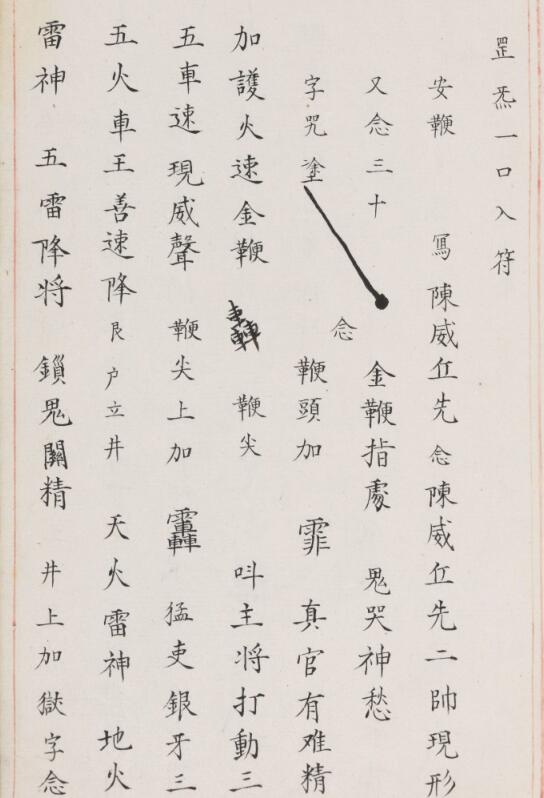 罡炁一口入符
安鞭 寫陳威丘先念陳威丘先二帥現形
又念三十 金鞭指處 鬼哭神愁
字咒塗 念鞭頭加 霏 真官有难精
加護火速金鞭 轟 鞭尖 呌主将打動三
五車速現威聲 鞭尖上加 猛吏銀牙三
五火車王善速降艮户立井 天火雷神 地火
雷神 五雷降将 鎖鬼關精 井上加獄字念